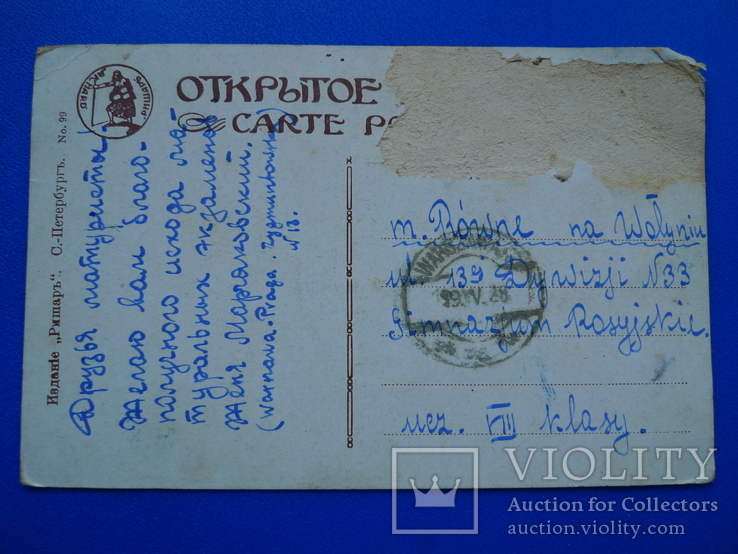 ОТКРЫТОЕ
CARTE P
No. 99
Изданіе „Ришаръ“. С.-Петербургъ.
Друзья матуристы!
Желаю вам благо-
получного исхода ма-
туральных экзаменов
Женя Марзановский.
(Warszawa-Praga. Zygmuntowska
N 13.
m. Równe na Wołyniu
ul. 139 Dywizji N33
Gimnazjum Rosyjskie.
ucz. VIII klasy.
VIOLITY
Auction for Collectors
auction.violity.com